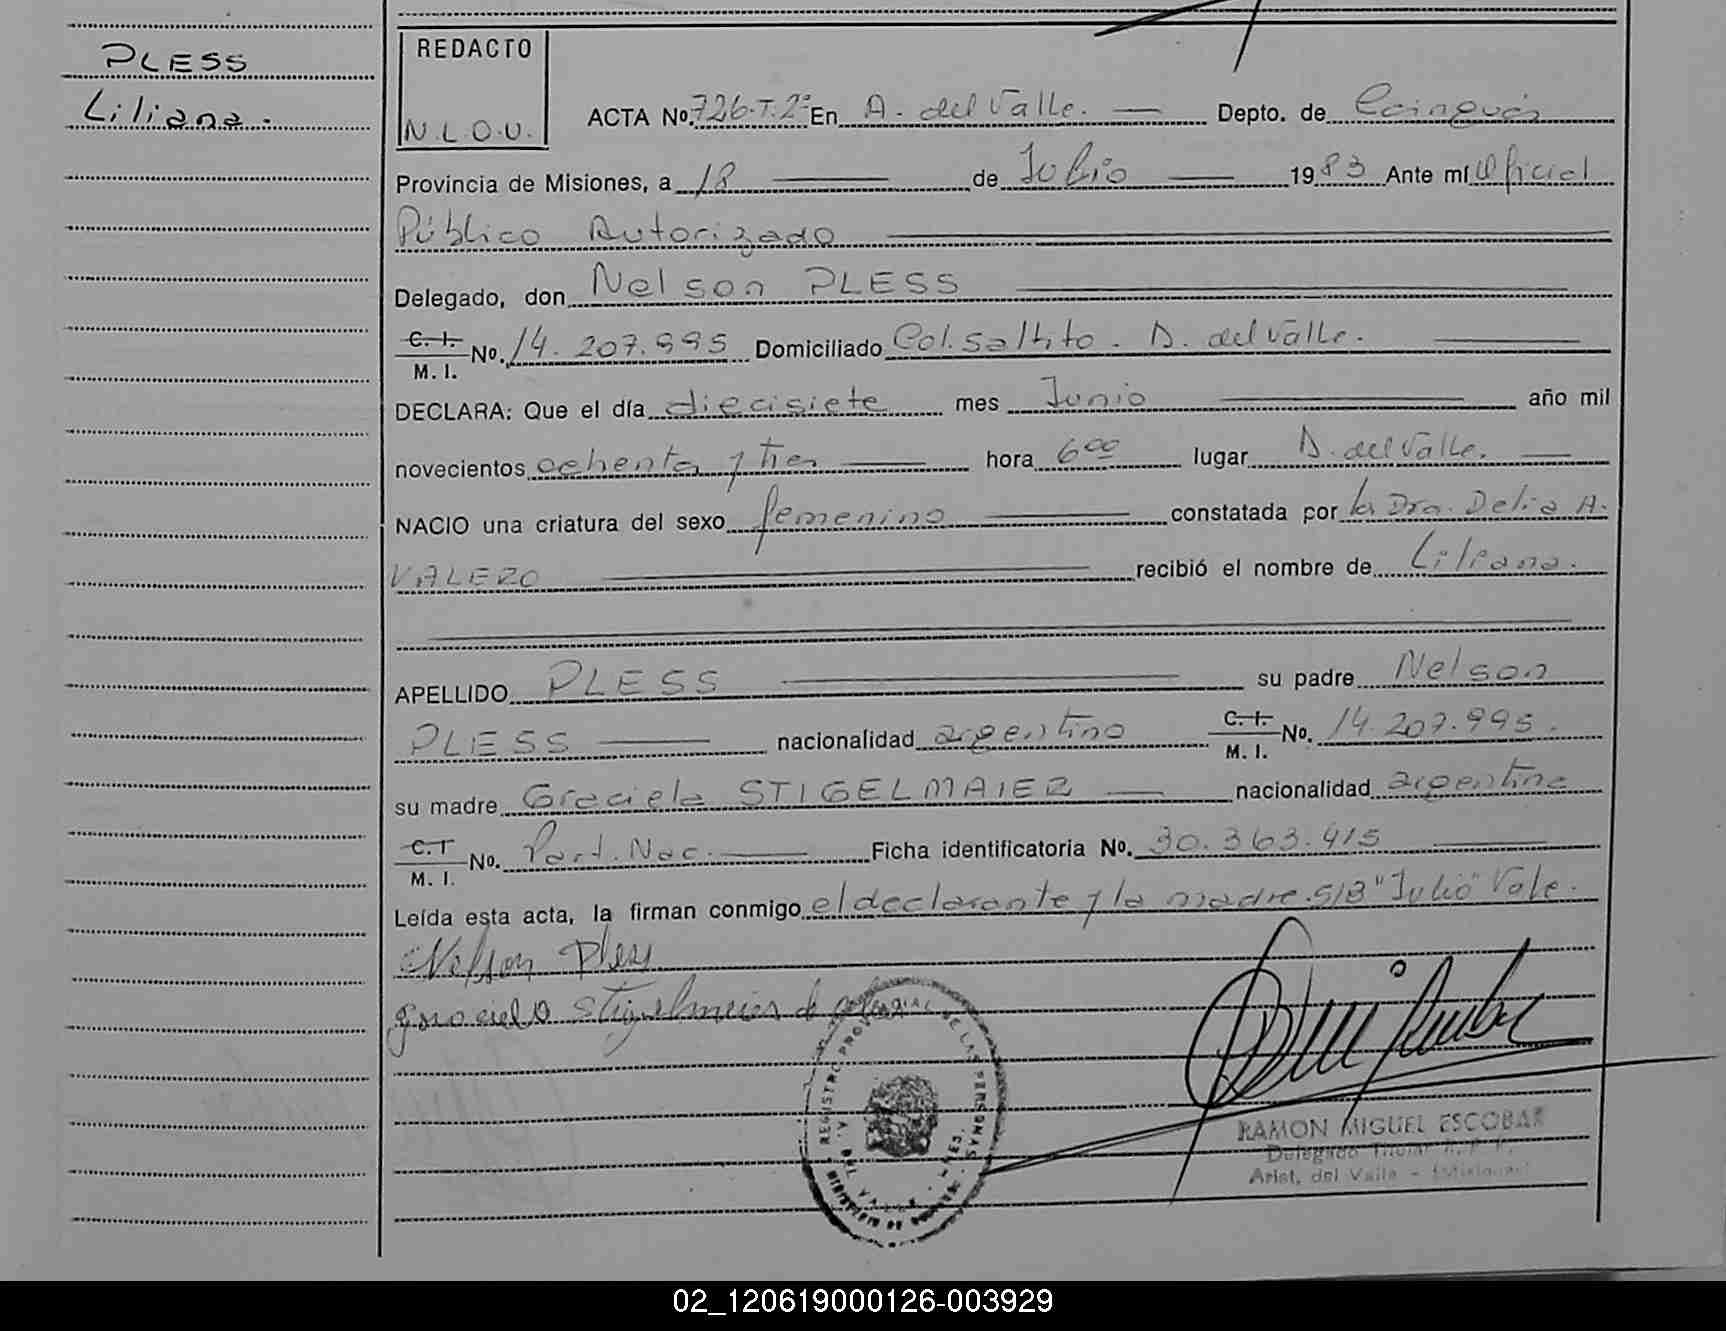 PLESS
Liliana.
REDACTO
N.L.O.U.
ACTA No. 726-T.2º En A. del Valle. Depto. de Cainguás
Provincia de Misiones, a 18 de Julio 1983 Ante mí Oficial
Público Autorizado
Delegado, don Nelson PLESS
C. I. M. I. No. 14.207.995 Domiciliado Col. Saltito. A. del Valle.
DECLARA: Que el día diecisiete mes Junio año mil
novecientos ochenta y tres hora 6 00 lugar A. del Valle.
NACIO una criatura del sexo femenino constatada por la Dra. Delia A.
VALERO recibió el nombre de Liliana.
APELLIDO PLESS su padre Nelson
PLESS nacionalidad argentino C. I. M. I. No. 14.207.995.
su madre Graciela STIGELMAIER nacionalidad argentina
C. I M. I. No. Part. Nac. Ficha identificatoria No. 30.363.415
Leída esta acta, la firman conmigo el declarante y la madre. S/B "Julio" Vale.
Nelson Pless
Graciela Stigelmaier de
REGISTRO PROVINCIAL DE LAS PERSONAS
A. DEL VALLE - MNES.
MINISTERIO DE
RAMON MIGUEL ESCOBAR
Delegado Titular R. P. P.
Arist. del Valle - (Misiones)
02_120619000126-003929